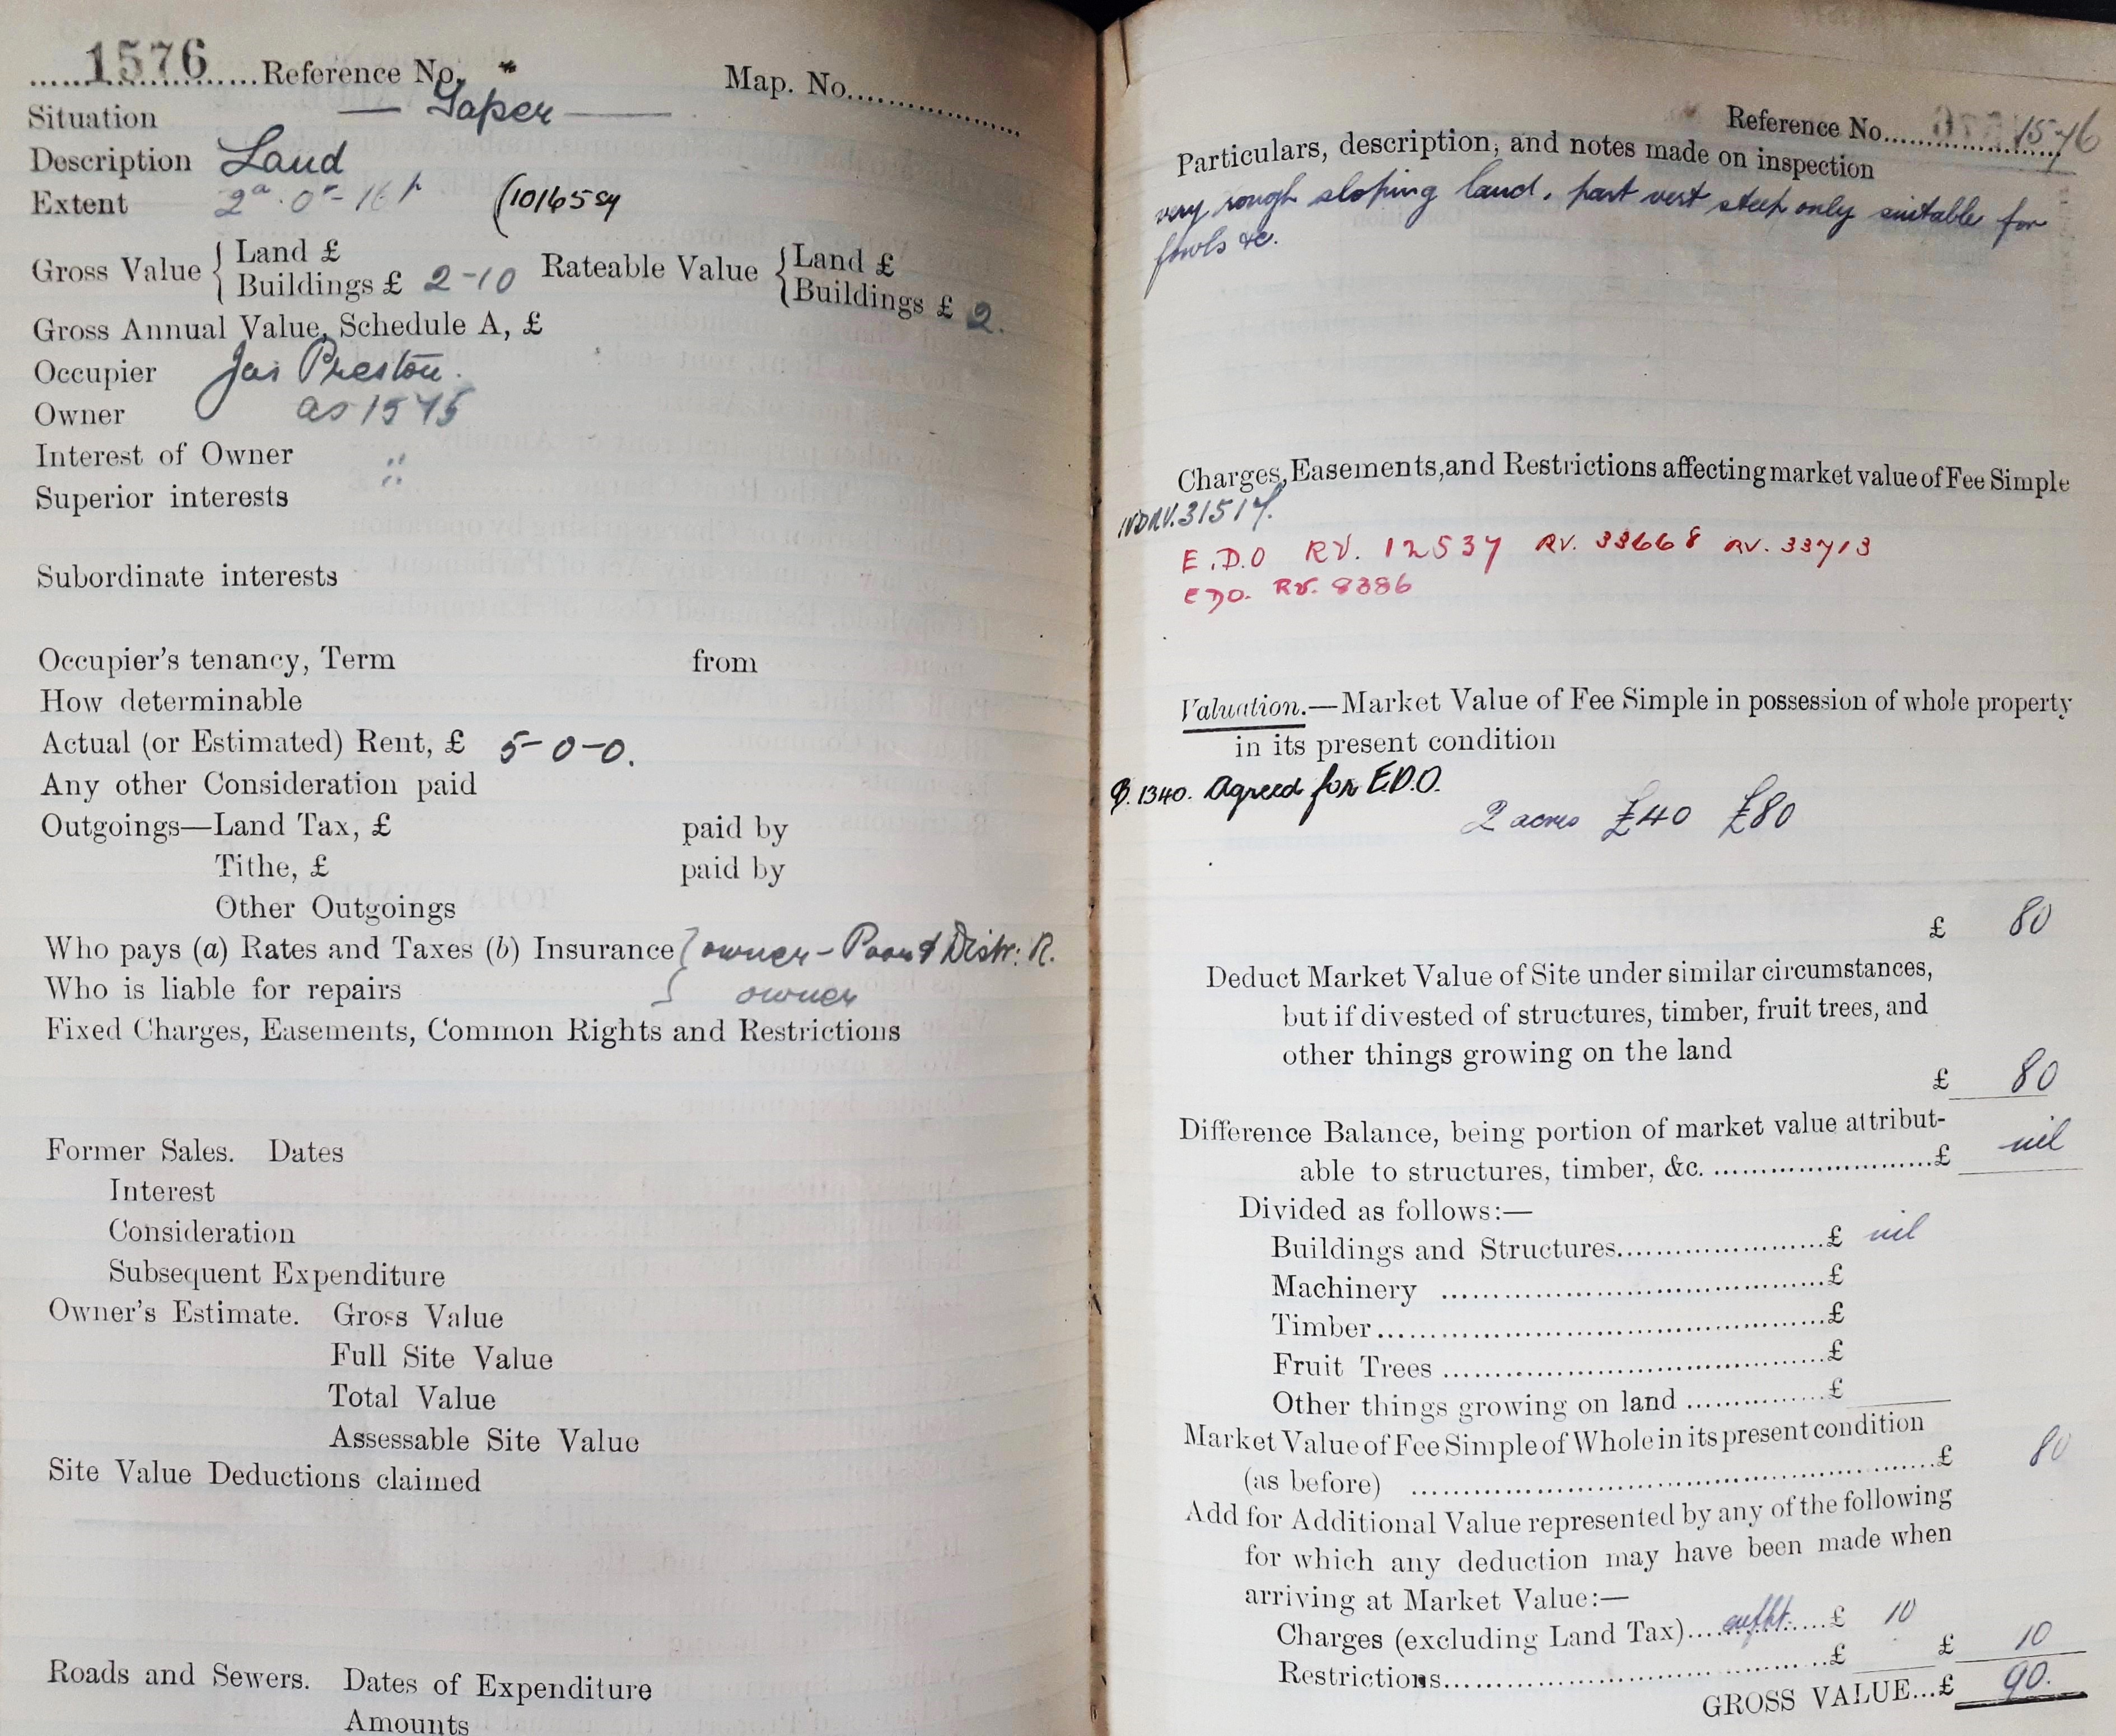 1576 Reference No. Map. No.
Situation — Gaper —
Description Land
Extent 2a. 0r - 16p (10165 sy
Gross Value { Land £
Buildings £ 2-10 Rateable Value { Land £
Buildings £ 2.
Gross Annual Value, Schedule A, £
Occupier Jas Preston.
Owner as 1575
Interest of Owner "
Superior interests "
Subordinate interests
Occupier's tenancy, Term from
How determinable
Actual (or Estimated) Rent, £ 5-0-0.
Any other Consideration paid
Outgoings—Land Tax, £ paid by
Tithe, £ paid by
Other Outgoings
Who pays (a) Rates and Taxes (b) Insurance } owner - Poor & Distr: R.
Who is liable for repairs } owner
Fixed Charges, Easements, Common Rights and Restrictions
Former Sales. Dates
Interest
Consideration
Subsequent Expenditure
Owner's Estimate. Gross Value
Full Site Value
Total Value
Assessable Site Value
Site Value Deductions claimed
Roads and Sewers. Dates of Expenditure
Amounts
Reference No. 1576
Particulars, description, and notes made on inspection
very rough sloping land, part very steep only suitable for
fowls &c.
Charges, Easements, and Restrictions affecting market value of Fee Simple
IVDRV. 31517.
E.D.O RV. 12537 RV. 33668 RV. 33713
EDO. RV. 8386
Valuation.—Market Value of Fee Simple in possession of whole property
in its present condition
1340. Agreed for E.D.O.
2 acres £40 £80
£ 80
Deduct Market Value of Site under similar circumstances,
but if divested of structures, timber, fruit trees, and
other things growing on the land
£ 80
Difference Balance, being portion of market value attribut-
able to structures, timber, &c. £ nil
Divided as follows:—
Buildings and Structures £ nil
Machinery £
Timber £
Fruit Trees £
Other things growing on land £
Market Value of Fee Simple of Whole in its present condition
(as before) £ 80
Add for Additional Value represented by any of the following
for which any deduction may have been made when
arriving at Market Value:—
Charges (excluding Land Tax) £ 10
Restrictions £ £ 10
GROSS VALUE...£ 90.